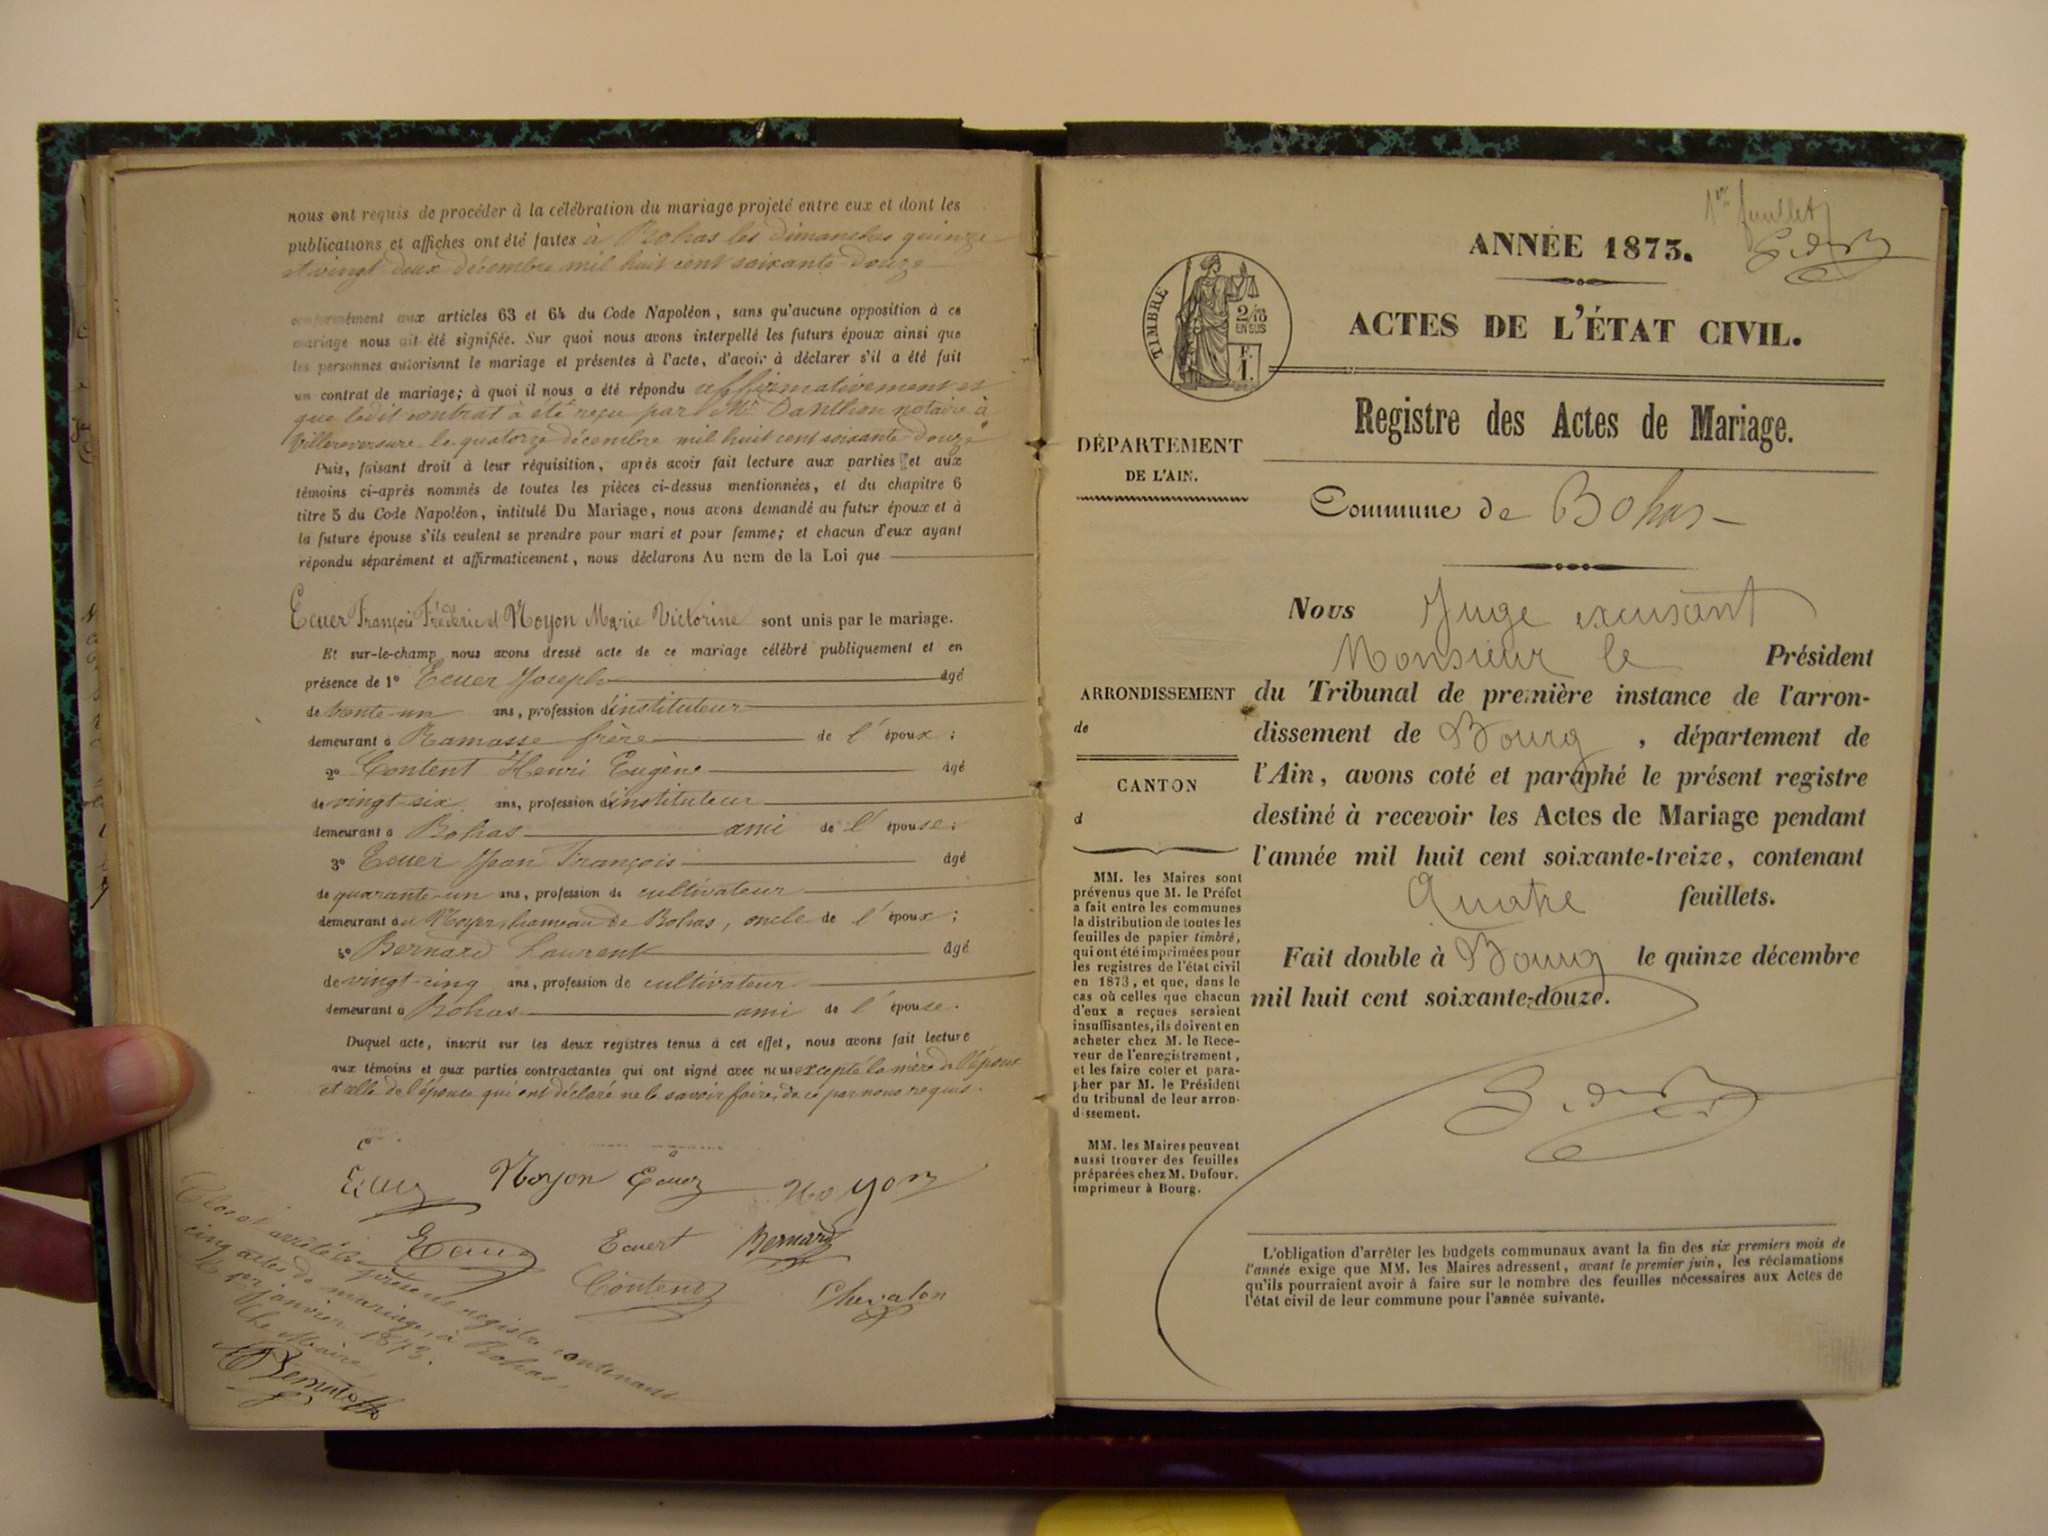 nous ont requis de procéder à la célébration du mariage projeté entre eux et dont les
publications et affiches ont été faites à Bohas les dimanches quinze
et vingt-deux décembre mil huit cent soixante-douze
conformément aux articles 63 et 64 du Code Napoléon, sans qu'aucune opposition à ce
mariage nous ait été signifiée. Sur quoi nous avons interpellé les futurs époux ainsi que
les personnes autorisant le mariage et présentes à l'acte, d'avoir à déclarer s'il a été fait
un contrat de mariage; à quoi il nous a été répondu affirmativement et
que ledit contrat a été reçu par Me Danthon notaire à
Villereversure le quatorze décembre mil huit cent soixante-douze
Puis, faisant droit à leur réquisition, après avoir fait lecture aux parties et aux
témoins ci-après nommés de toutes les pièces ci-dessus mentionnées, et du chapitre 6
titre 5 du Code Napoléon, intitulé Du Mariage, nous avons demandé au futur époux et à
la future épouse s'ils veulent se prendre pour mari et pour femme; et chacun d'eux ayant
répondu séparément et affirmativement, nous déclarons Au nom de la Loi que
Ecuer François Frédéric et Noyon Marie Victorine sont unis par le mariage.
Et sur-le-champ nous avons dressé acte de ce mariage célébré publiquement et en
présence de 1° Ecuer Joseph âgé
de trente-un ans, profession d'instituteur
demeurant à Ramasse frère de l'époux;
2° Content Henri Eugène âgé
de vingt-six ans, profession d'instituteur
demeurant à Bohas ami de l'épouse;
3° Ecuer Jean François âgé
de quarante-un ans, profession de cultivateur
demeurant à hameau de Bohas, oncle de l'époux;
4° Bernard Laurent âgé
de vingt-cinq ans, profession de cultivateur
demeurant à Bohas ami de l'épouse.
Duquel acte, inscrit sur les deux registres tenus à cet effet, nous avons fait lecture
aux témoins et aux parties contractantes qui ont signé avec nous excepté la mère de l'époux
et celle de l'épouse qui ont déclaré ne le savoir faire, de ce par nous requis.
Ecuer Noyon Ecuer Noyon
Ecuer Ecuert Bernard
Content Chevalon
Clos et arrêté le présent registre contenant
cinq actes de mariage, à Bohas,
le 1er janvier 1873.
Le Maire
ANNÉE 1873.
1er feuillet
ACTES DE L'ÉTAT CIVIL.
TIMBRE
2/10
EN SUS
F.
1.
Registre des Actes de Mariage.
DÉPARTEMENT
DE L'AIN.
Commune de Bohas
Nous Juge excusant
Monsieur le Président
du Tribunal de première instance de l'arron-
dissement de Bourg, département de
l'Ain, avons coté et paraphé le présent registre
destiné à recevoir les Actes de Mariage pendant
l'année mil huit cent soixante-treize, contenant
Quatre feuillets.
Fait double à Bourg le quinze décembre
mil huit cent soixante-douze.
ARRONDISSEMENT
de
CANTON
d
MM. les Maires sont
prévenus que M. le Préfet
a fait entre les communes
la distribution de toutes les
feuilles de papier timbré,
qui ont été imprimées pour
les registres de l'état civil
en 1873, et que, dans le
cas où celles que chacun
d'eux a reçues seraient
insuffisantes, ils doivent en
acheter chez M. le Rece-
veur de l'enregistrement,
et les faire coter et para-
pher par M. le Président
du tribunal de leur arron-
dissement.
MM. les Maires peuvent
aussi trouver des feuilles
préparées chez M. Dufour,
imprimeur à Bourg.
L'obligation d'arrêter les budgets communaux avant la fin des six premiers mois de
l'année exige que MM. les Maires adressent, avant le premier juin, les réclamations
qu'ils pourraient avoir à faire sur le nombre des feuilles nécessaires aux Actes de
l'état civil de leur commune pour l'année suivante.